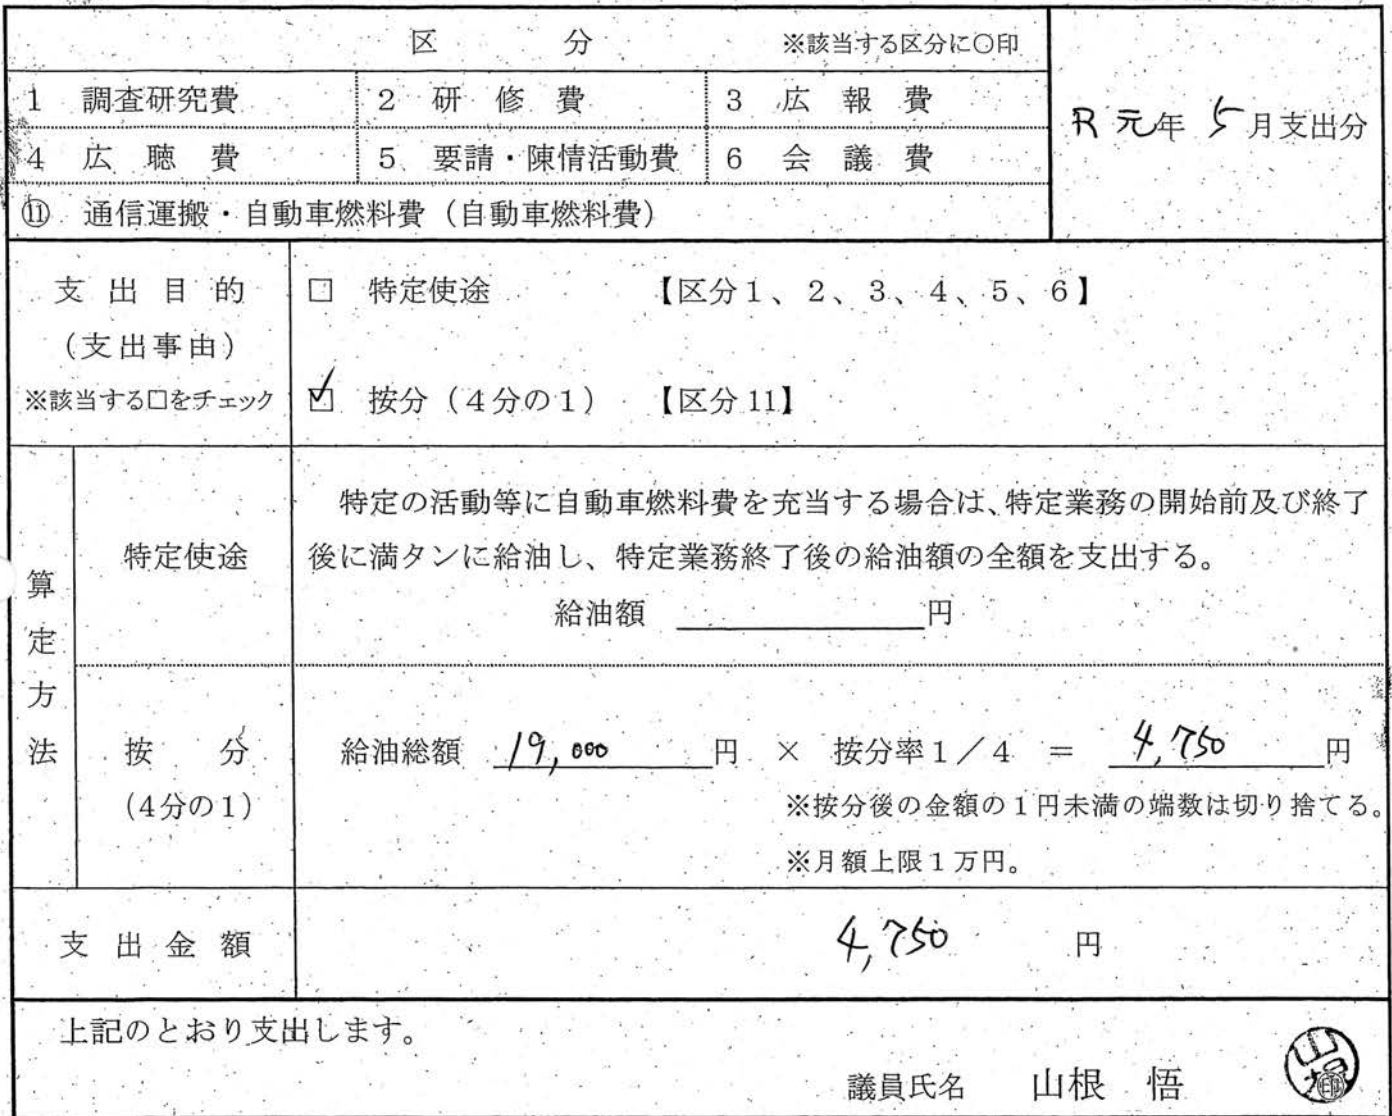 区 分 ※該当する区分に○印
R元年 5月支出分
1 調査研究費 2 研修費 3 広報費
4 広聴費 5 要請・陳情活動費 6 会議費
⑪ 通信運搬・自動車燃料費(自動車燃料費)
支出目的
(支出事由)
※該当する□をチェック
□ 特定使途 【区分1、2、3、4、5、6】
☑ 按分(4分の1) 【区分11】
算定方法
特定使途
特定の活動等に自動車燃料費を充当する場合は、特定業務の開始前及び終了
後に満タンに給油し、特定業務終了後の給油額の全額を支出する。
給油額 円
按分
(4分の1)
給油総額 19,000円 × 按分率1/4 = 4,750円
※按分後の金額の1円未満の端数は切り捨てる。
※月額上限1万円。
支出金額 4,750 円
上記のとおり支出します。
議員氏名 山根 悟
印